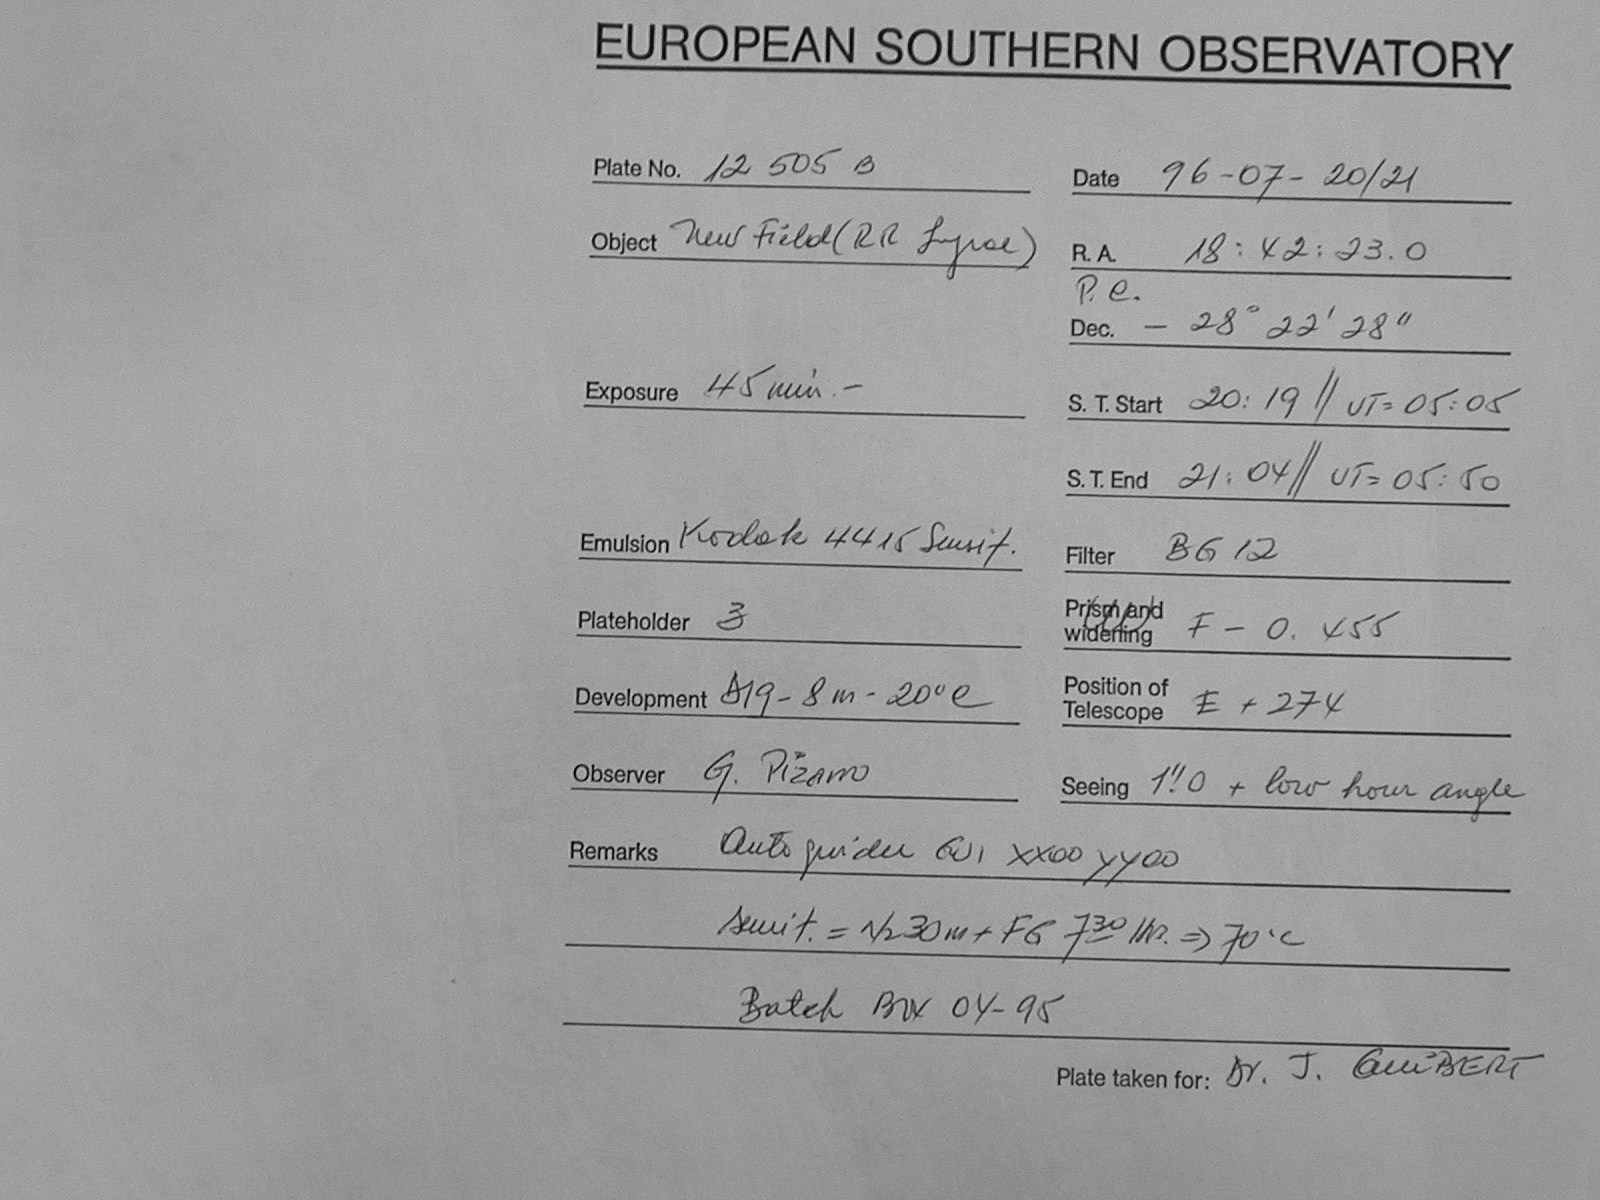 EUROPEAN SOUTHERN OBSERVATORY
Plate No. 12 505 B
Date 96-07-20/21
Object New Field (RR Lyrae)
R. A. 18:42:23.0
P.e.
Dec. - 28° 22' 28"
Exposure 45 min.-
S. T. Start 20:19 // UT= 05:05
S. T. End 21:04 // UT= 05:50
Emulsion Kodak 4415 Sensit.
Filter BG 12
Plateholder 3
Prism and widening F - 0.455
Development D19 - 8 m - 20°C
Position of Telescope E + 274
Observer G. Pizarro
Seeing 1"!0 + low hour angle
Remarks Autoguider GU1 XX00 YY00
Sensit. = N2 30m + FG 7 30 Hrs. => 70°C
Batch Box 04-95
Plate taken for: Dr. J. GuiBERT